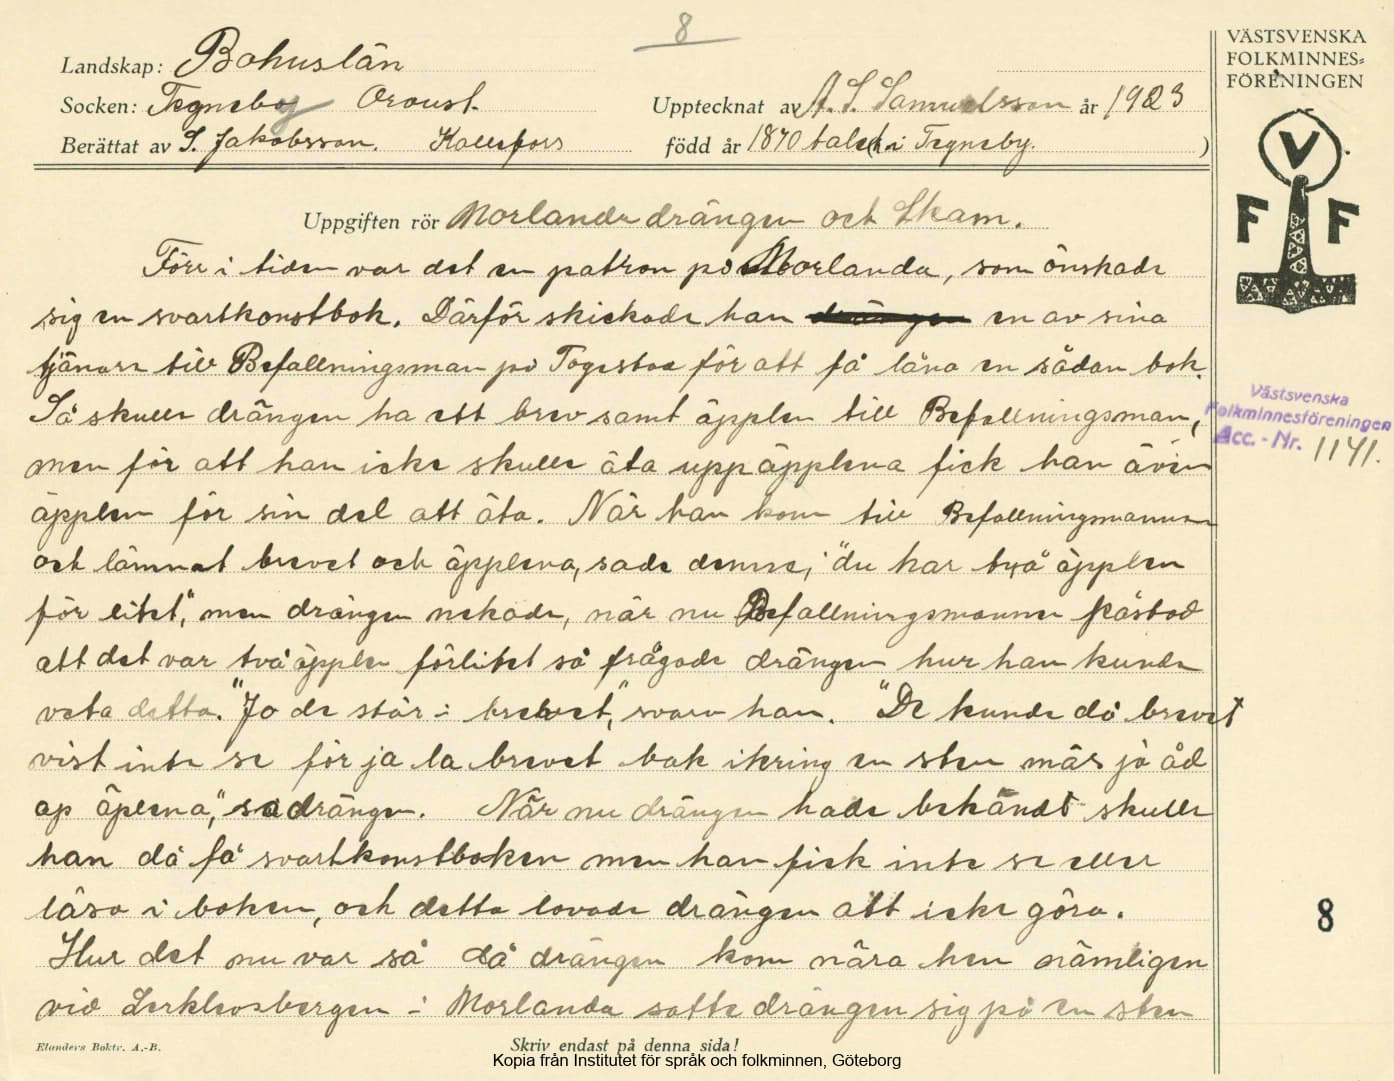 8
VÄSTSVENSKA
FOLKMINNES=
FÖRENINGEN
Landskap: Bohuslän
Socken: Tegneby Oroust. Upptecknat av A. S. Samuelsson år 1923
Berättat av S. Jakobsson. Kallefors född år 1870 talet i Tegneby. )
VFF
Uppgiften rör Morlanda drängen och Skam.
Förr i tiden var det en patron på Morlanda, som önskade
sig en svartkonstbok. Därför skickade han drängen en av sina
tjänare till Befallningsman på Togestad för att få låna en sådan bok.
Så skulle drängen ha ett brev samt äpplen till Befallningsman,
men för att han icke skulle äta upp äpplena fick han även
äpplen för sin del att äta. När han kom till Befallningsmannen
och lämnat brevet och äpplena, sade denne; "du har två äpplen
för litet," men drängen nekade, när nu Befallningsmannen påstod
att det var två äpplen förlitet så frågade drängen hur han kunde
veta detta. "Jo de står i brevet," svara han. "De kunde då brevet
vist inte se för ja la brevet bak ikring en sten mäs jå åd
op äplena," sa drängen. När nu drängen hade bekändt skulle
han då få svartkonstboken men han fick inte se eller
läsa i boken, och detta lovade drängen att icke göra.
Hur det nu var så då drängen kom nära hem nämligen
vid Lerklevsbergen i Morlanda satte drängen sig på en sten
Västsvenska
Folkminnesföreningen
Acc. - Nr. 1141.
8
Elanders Boktr. A.-B.
Skriv endast på denna sida!
Kopia från Institutet för språk och folkminnen, Göteborg